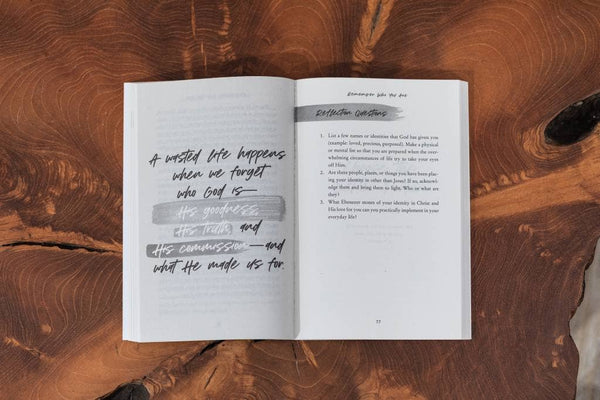 A wasted life happens
when we forget
who God is—
His goodness,
His truth, and
His commission—and
what He made us for.
Remember Who You Are
Reflection Questions
1. List a few names or identities that God has given you
(example: loved, precious, purposed). Make a physical
or mental list so that you are prepared when the over-
whelming circumstances of life try to take your eyes
off Him.
2. Are there people, places, or things you have been plac-
ing your identity in other than Jesus? If so, acknowl-
edge them and bring them to light. Who or what are
they?
3. What Ebenezer stones of your identity in Christ and
His love for you can you practically implement in your
everyday life?
77